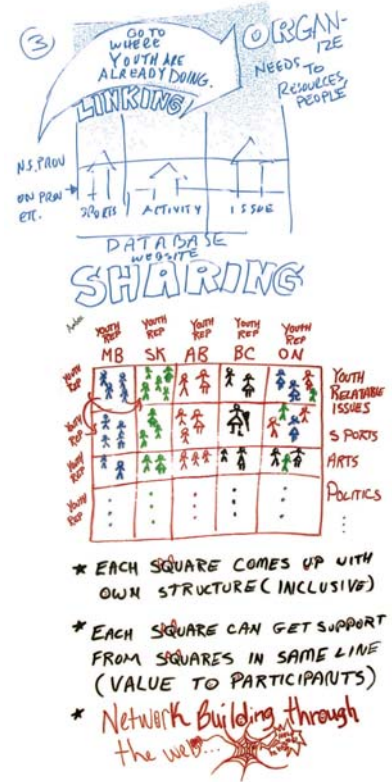 3
GO TO
WHERE
YOUTH ARE
ALREADY DOING.
ORGAN-
IZE
NEEDS TO
RESOURCES,
PEOPLE
LINKING!
N.S. PROV
ON PROV
ETC.
SPORTS
ACTIVITY
ISSUE
DATABASE
WEBSITE
SHARING
YOUTH REP YOUTH REP YOUTH REP YOUTH REP YOUTH REP
MB SK AB BC ON
YOUTH REP
YOUTH
RELATABLE
ISSUES
YOUTH REP
SPORTS
YOUTH REP
ARTS
YOUTH REP
POLITICS
* EACH SQUARE COMES UP WITH
OWN STRUCTURE (INCLUSIVE)
* EACH SQUARE CAN GET SUPPORT
FROM SQUARES IN SAME LINE
(VALUE TO PARTICIPANTS)
* Network Building through
the web...